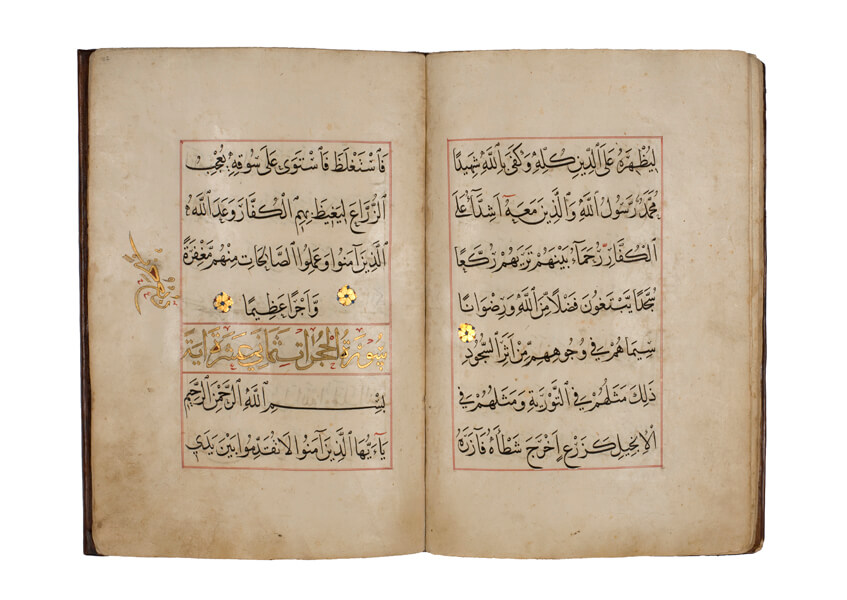 لِيُظْهِرَهُ عَلَى الدِّينِ كُلِّهِ وَكَفَىٰ بِاللَّهِ شَهِيدًا
مُحَمَّدٌ رَسُولُ اللَّهِ وَالَّذِينَ مَعَهُ أَشِدَّاءُ عَلَى
الْكُفَّارِ رُحَمَاءُ بَيْنَهُمْ تَرَيهُمْ رُكَّعًا
سُجَّدًا يَبْتَغُونَ فَضْلًا مِنَ اللَّهِ وَرِضْوَانًا
سِيمَاهُمْ فِي وُجُوهِهِمْ مِنْ أَثَرِ السُّجُودِ
ذَلِكَ مَثَلُهُمْ فِي التَّوْرَيةِ وَمَثَلُهُمْ فِي
الْإِنْجِيلِ كَزَرْعٍ أَخْرَجَ شَطْأَهُ فَآزَرَهُ
فَاسْتَغْلَظَ فَاسْتَوَى عَلَى سُوقِهِ يُعْجِبُ
الزُّرَّاعَ لِيَغِيظَ بِهِمُ الْكُفَّارَ وَعَدَ اللَّهُ
الَّذِينَ آمَنُوا وَعَمِلُوا الصَّالِحَاتِ مِنْهُمْ مَغْفِرَةً
وَأَجْرًا عَظِيمًا
سورة الحجرات ثماني عشرة آية
بِسْمِ اللَّهِ الرَّحْمَنِ الرَّحِيمِ
يَا أَيُّهَا الَّذِينَ آمَنُوا لَا تُقَدِّمُوا بَيْنَ يَدَيِ